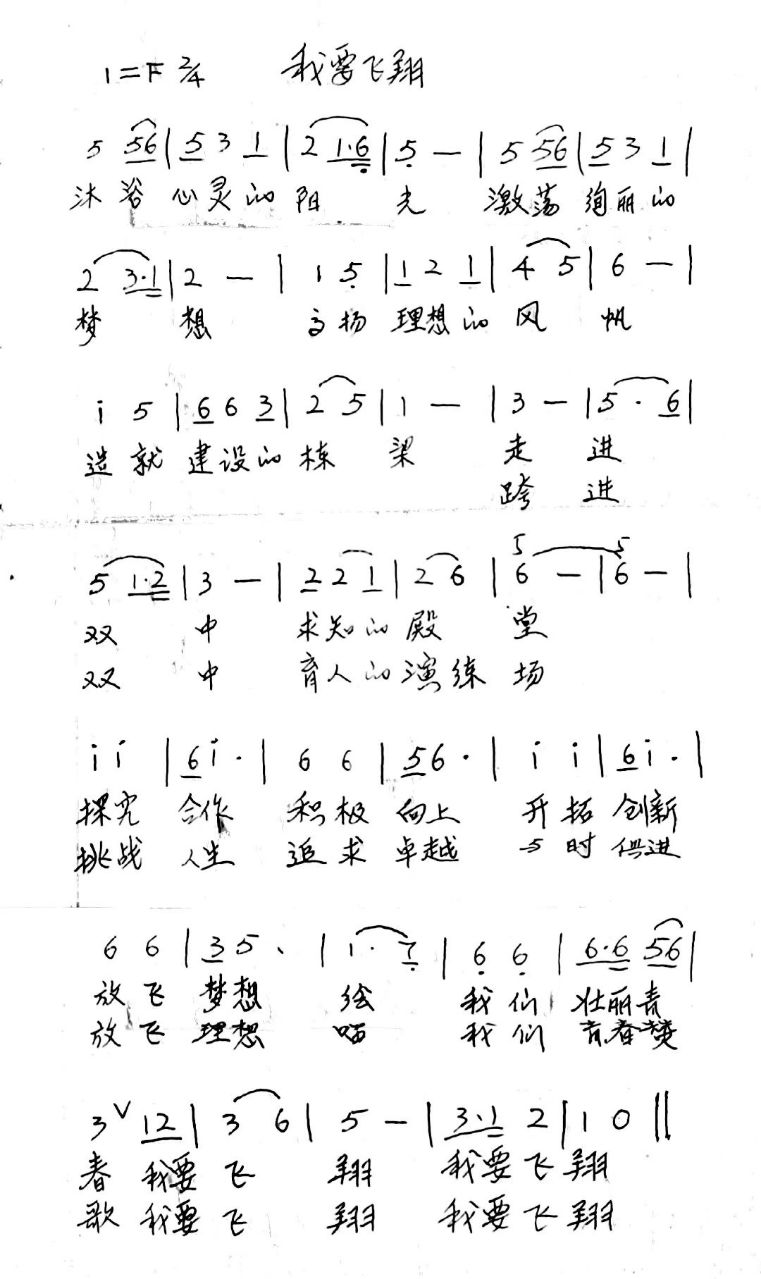 1=F 2/4 我要飞翔
5 56 | 5 3 1 | 2 1·6 | 5 — | 5 56 | 5 3 1 |
沐浴 心灵的 阳 光 激荡 绚丽的
2 3·1 | 2 — | 1 5 | 1 2 1 | 4 5 | 6 — |
梦 想 高扬 理想的 风 帆
i 5 | 6 6 3 | 2 5 | 1 — | 3 — | 5 · 6 |
造就 建设的 栋 梁 走 进
跨 进
5 1·2 | 3 — | 2 2 1 | 2 6 | 5 6 — | 5 6 — |
双 中 求知的 殿 堂
双 中 育人的 演练 场
i i | 6 i · | 6 6 | 5 6 · | i i | 6 i · |
探究 合作 积极 向上 开拓 创新
挑战 人生 追求 卓越 与时 俱进
6 6 | 3 5 · | 1 · 7 | 6 6 | 6·6 56 |
放飞 梦想 绘 我们 壮丽青
放飞 理想 唱 我们 青春赞
3 ∨ 12 | 3 6 | 5 — | 3·1 2 | 1 0 ||
春 我要 飞 翔 我要飞翔
歌 我要 飞 翔 我要飞翔